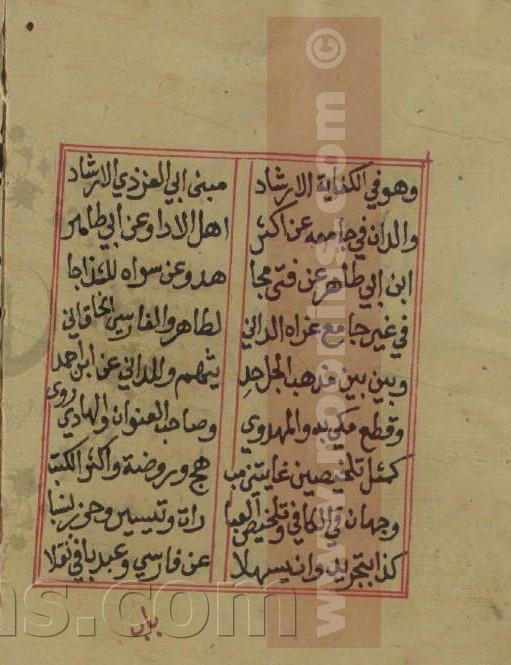 وهو في الكفاية الارشاد مبنى ابي العز ذي الارشاد
والدان في جامعه عن اكثر اهل الاداء وعن ابي طاهر
ابن ابي طاهر عن فتى مجا هد وعن سواه
في غير جامع عزاه الداني لطاهر والفارسي الخاقاني
وبين بين مذهب الجل حد يثهم والداني عن ابن احمد
وقطع مكي به والمهدوي وصاحب العنوان والهادي روى
كمثل تلخيصين غايتي مب هج وروضة واكثر الكتب
وجهان في الكافي وتلخيص العبا رات وتيسير وحرز
كذا بتجريد وان يسهلا عن فارسي وعبد باقي نقلا
باب
www.moonlins.com ©
ns.com